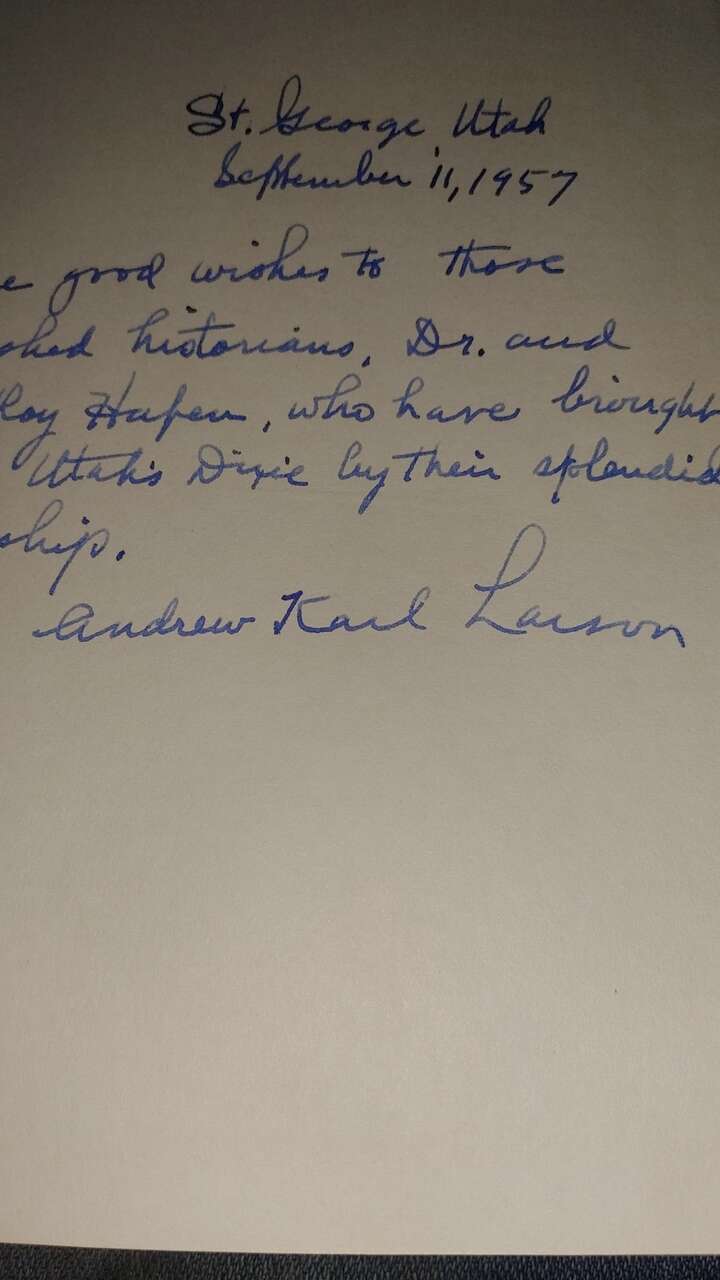 St. George, Utah
September 11, 1957
e good wishes to those
shed historians, Dr. and
Roy Hafen, who have brought
Utah's Dixie by their splendid
ship.
Andrew Karl Larson